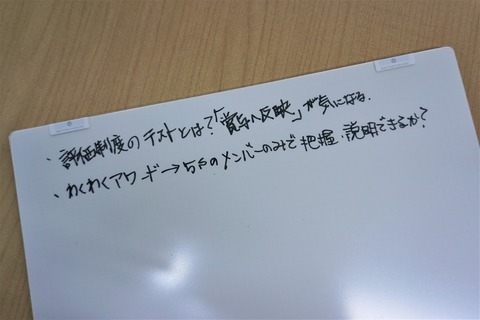 ・評価制度のテストとは?「賞与へ反映」が気になる.
・わくわくアワード→5Sのメンバーのみで把握.説明できるか?